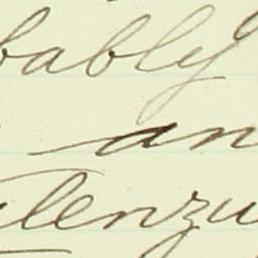 bably
an
lenzu